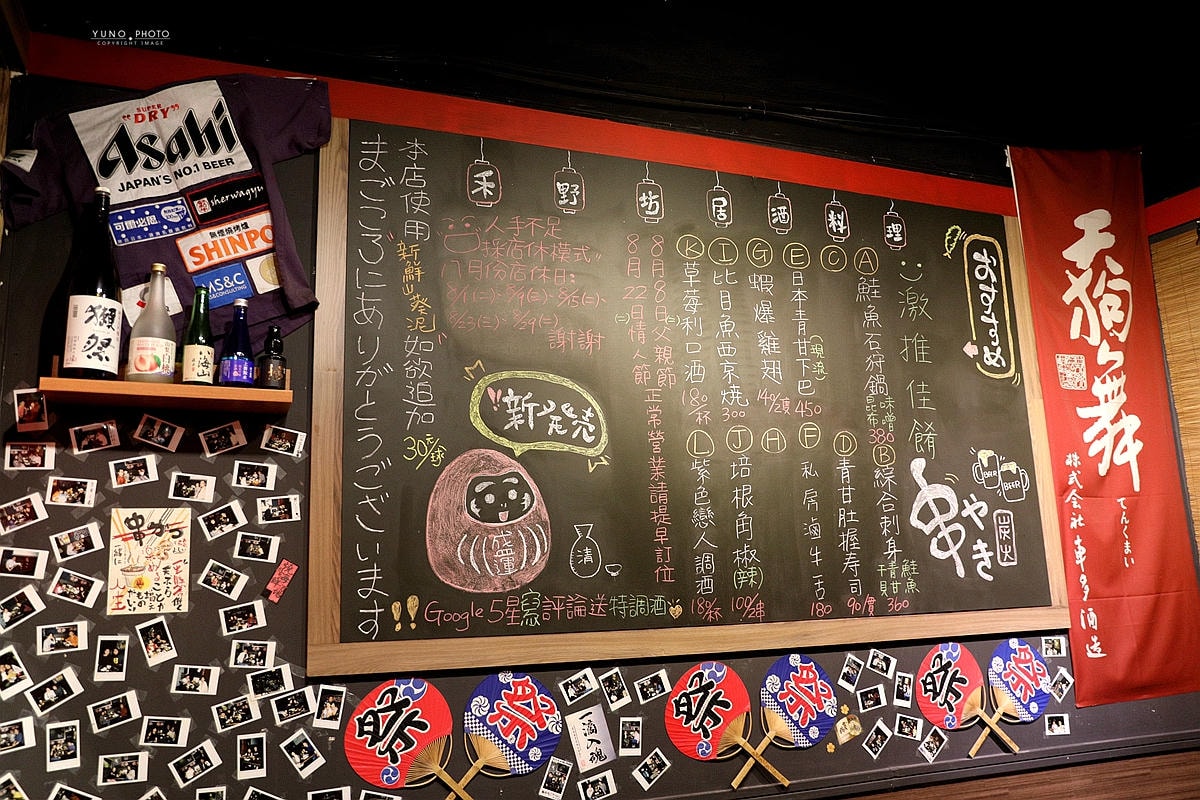 YUNO PHOTO
COPYRIGHT IMAGE
"SUPER DRY"
Asahi
JAPAN'S NO.1 BEER
sherwagyu
無煙燒烤爐
SHINPO
MS&C
&CONSULTING
獺祭
禾野坊居酒料理
おすすめ
激推佳餚
串やき
炭火
BEER
BEER
Ⓐ鮭魚石狩鍋 味噌 昆布 380
Ⓑ綜合刺身 鮭魚 青甘 干貝 360
Ⓒ
Ⓓ青甘肚握壽司 90/貫
Ⓔ日本青甘下巴(現流) 450
Ⓕ私房滷牛舌 180
Ⓖ蝦爆雞翅
Ⓗ
Ⓘ比目魚西京燒 300
Ⓙ培根角椒(辣) 100/2串
Ⓚ草莓利口酒 180/杯
Ⓛ紫色戀人調酒 180/杯
8月8日父親節
8月22日(二)情人節
正常營業請提早訂位
人手不足
採店休模式"
八月份店休日:
謝謝
新発売
盛運
清
本店使用"新鮮山葵泥"如欲追加
30元/球
まごころにありがとうございます!!
Google 5星評論送特調酒
天狗舞
てんぐまい
株式会社車多酒造
祭
祭
祭
祭
祭
祭
一滴入魂